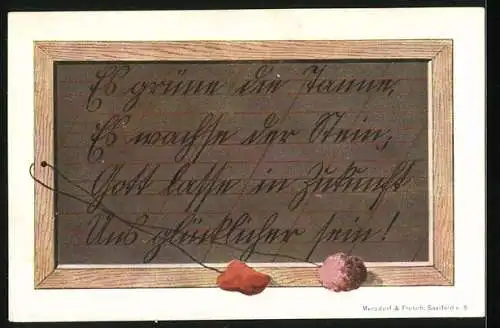 Es grüne die Tanne,
Es wachse der Stein,
Gott lasse in Zukunft
Uns glücklicher sein!
Mersdorf & Fletsch, Saalfeld a. S.